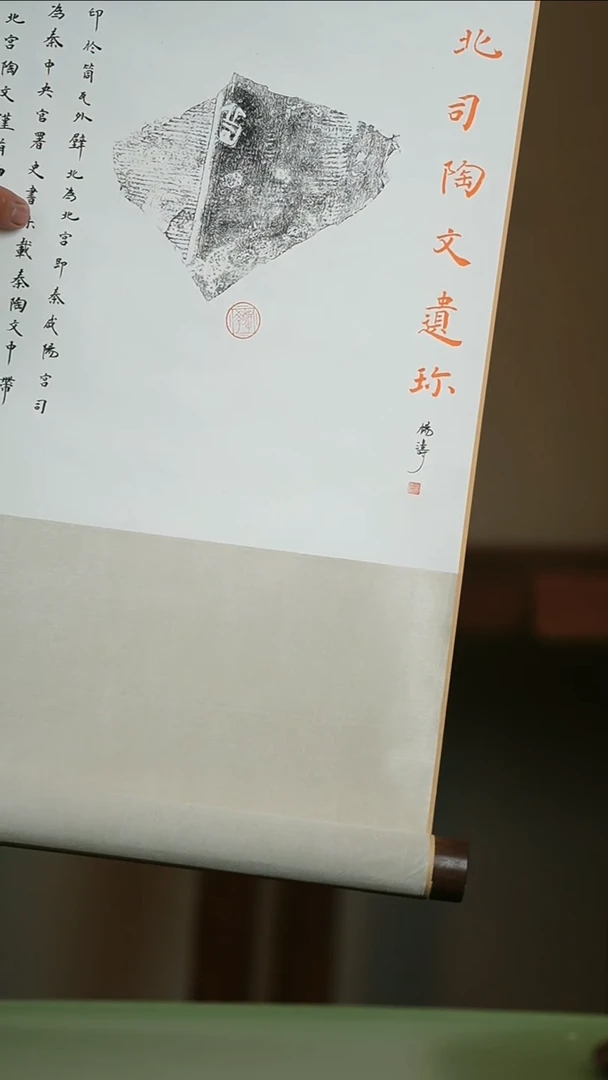 北司陶文遺珎
楊濤
印於筒瓦外壁北為北宮即秦咸陽宮司
為秦中央官署史書
載秦陶文中帶
北宮陶文僅